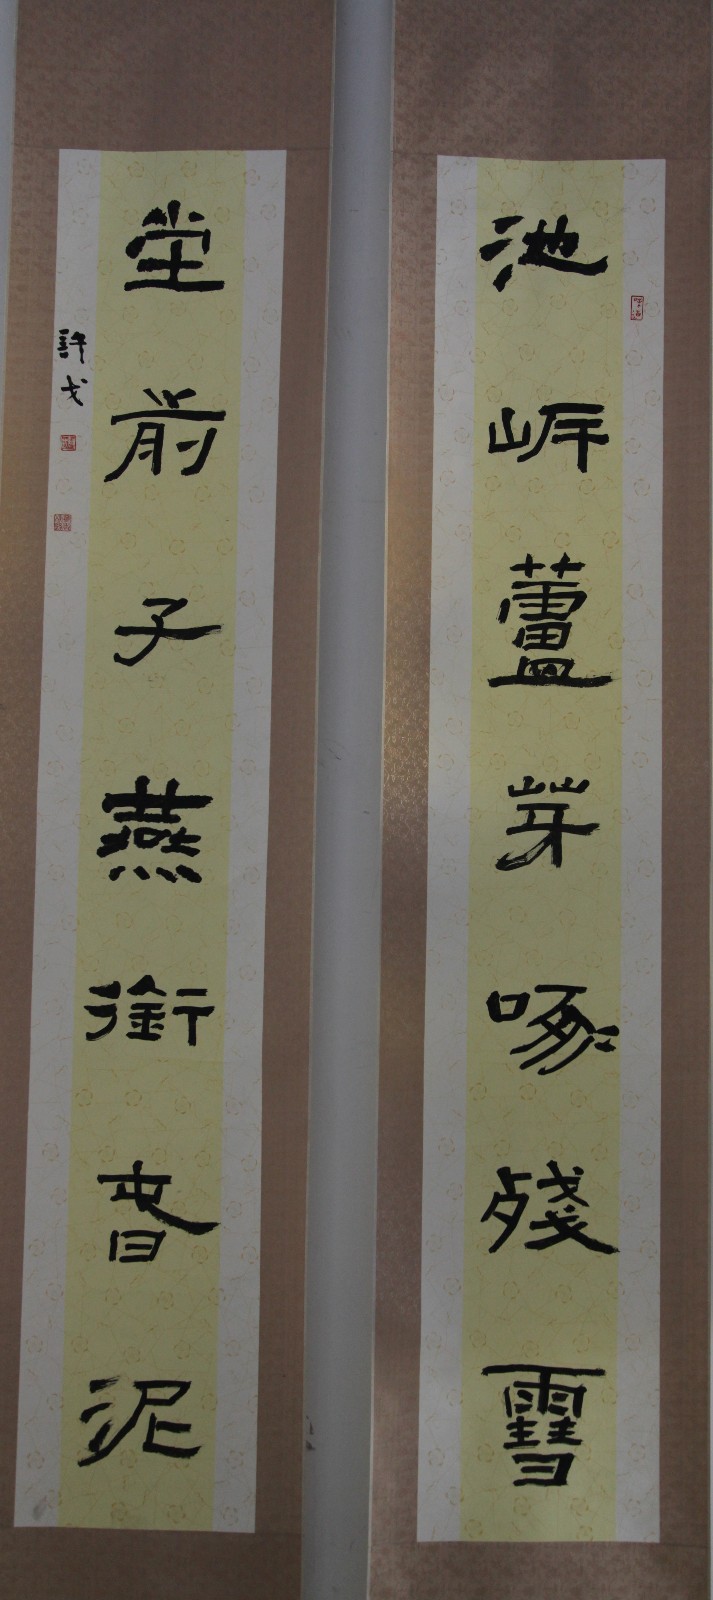 池岸蘆芽啄殘雪
堂前子燕銜春泥
許戈